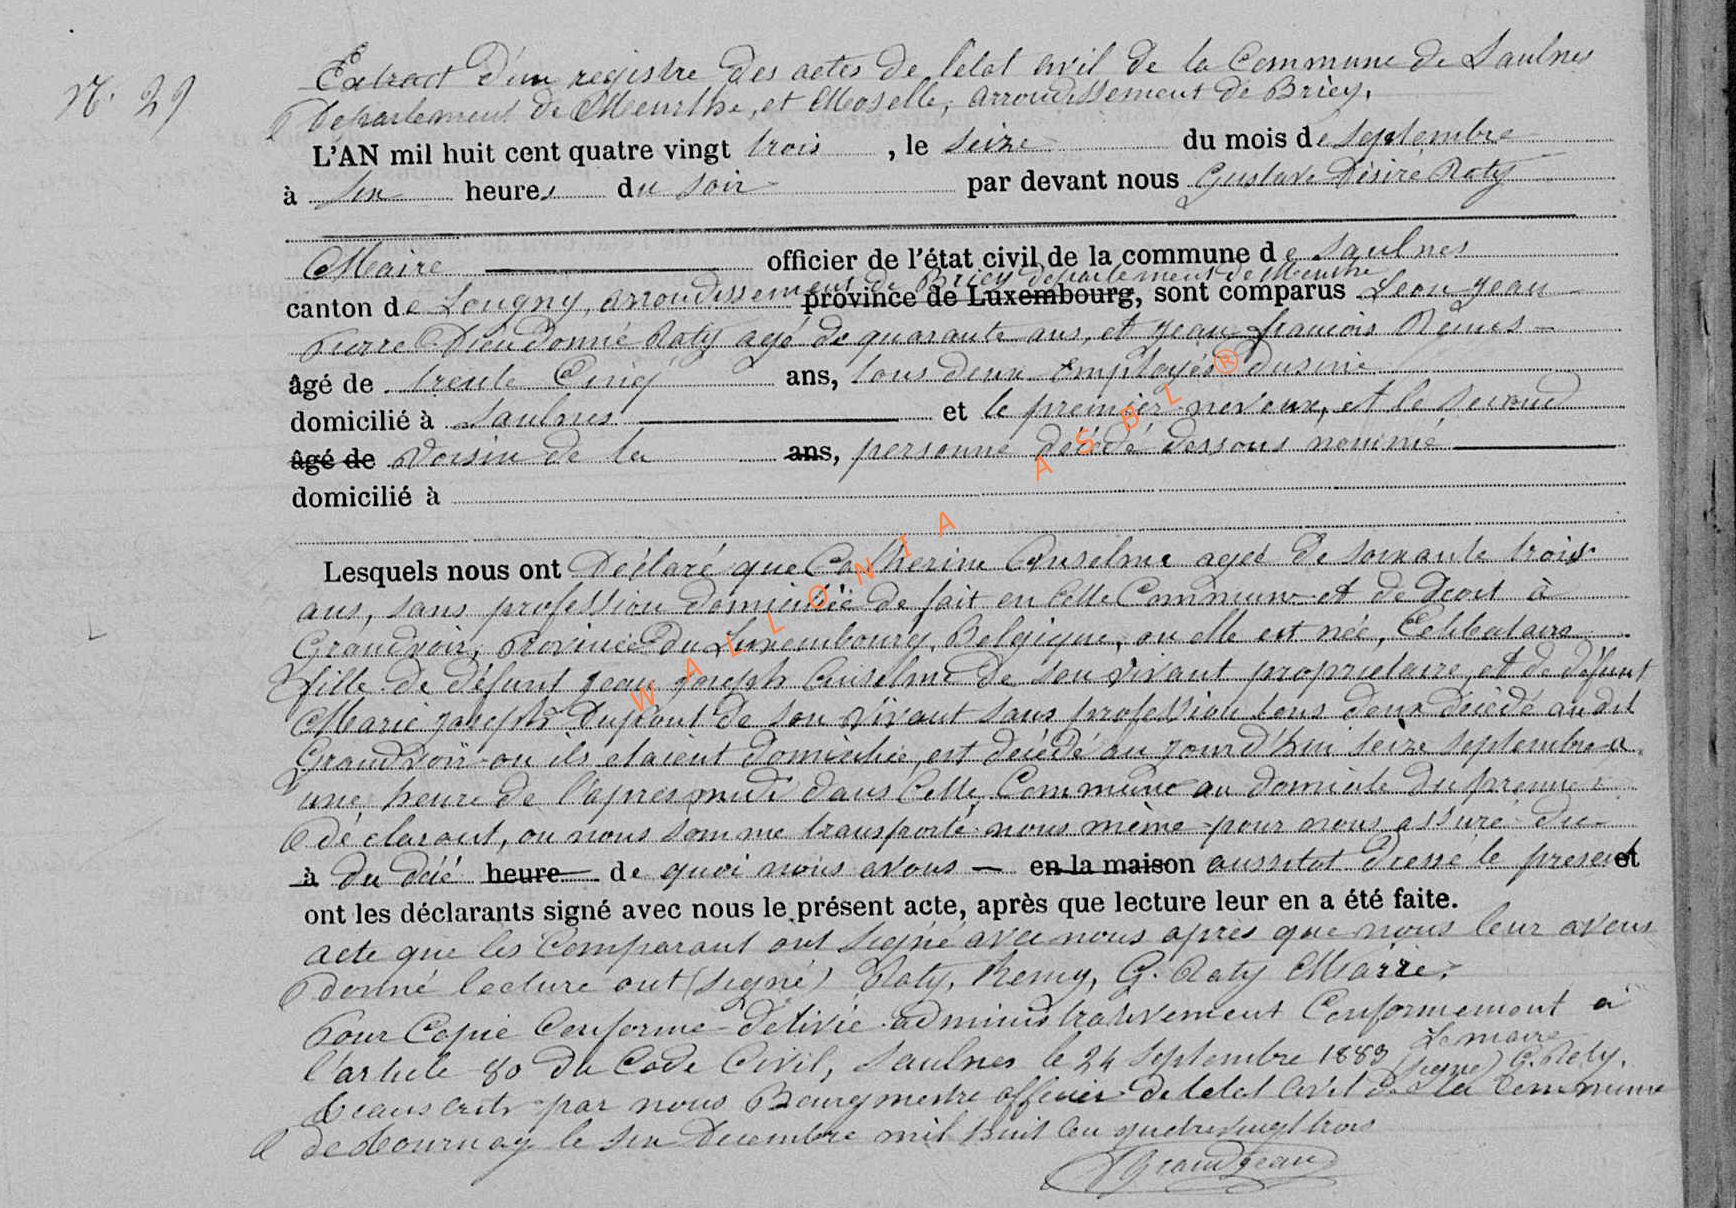 N. 29
Extract d'un registre des actes de l'état civil de la Commune de Saulnes
Departement de Meurthe, et Moselle, arroudissement de Briey.
L'AN mil huit cent quatre vingt trois, le seize du mois de septembre
à six heures du soir par devant nous Gustave Désiré Raty
Maire officier de l'état civil de la commune de Saulnes
canton de Longny, arroudissement de Briey departement de Meurthe
province de Luxembourg, sont comparus Leon Jean
Pierre Dieudonné Raty agé de quarante ans, et Jean francois
âgé de trente Cinq ans, tous deux Employés d'usine
domicilié à Saulnes et le premier neveux, et le second
âgé de voisin de la ans, personne décédé dessous nommé
domicilié à
Lesquels nous ont Déclaré que Catherine Anselme ageé de soixante trois
ans, sans profession domiciliée de fait en Cette Commune et de droit à
Grandvoir, Province du Luxembourg, Belgique, ou elle est née, Celibataire
fille de défunt Jean Joseph Anselme de son vivant proprietaire, et de défunt
Marie Joseph Dupont de son vivant sans profession tous deux décédé audit
Grandvoir ou ils etaient domicilié, est décédé au jourd'hui seize septembre a
une heure de l'apres midi dans Cette Commune au domicile du premier
déclarant, ou nous somme transporté nous même pour nous assuré du
à du heure de quoi nous avons en la maison aussitot dressé le present et
ont les déclarants signé avec nous le présent acte, après que lecture leur en a été faite.
acte que les Comparant ont signé avec nous après que nous leur avons
donné lecture ont (signé) Raty, Remy, G. Raty Maire.
Pour Copie Conforme delivré administrativement Conformement à
l'article 80 du Code Civil, Saulnes le 24 septembre 1883 Le maire (signé) G. Raty.
par nous Bourgmestre officier de l'etat Civil de la Commune
de Tournay le six Decembre mil huit cen quatre vingt trois
Grandjean
WALLONIA ASBL ®